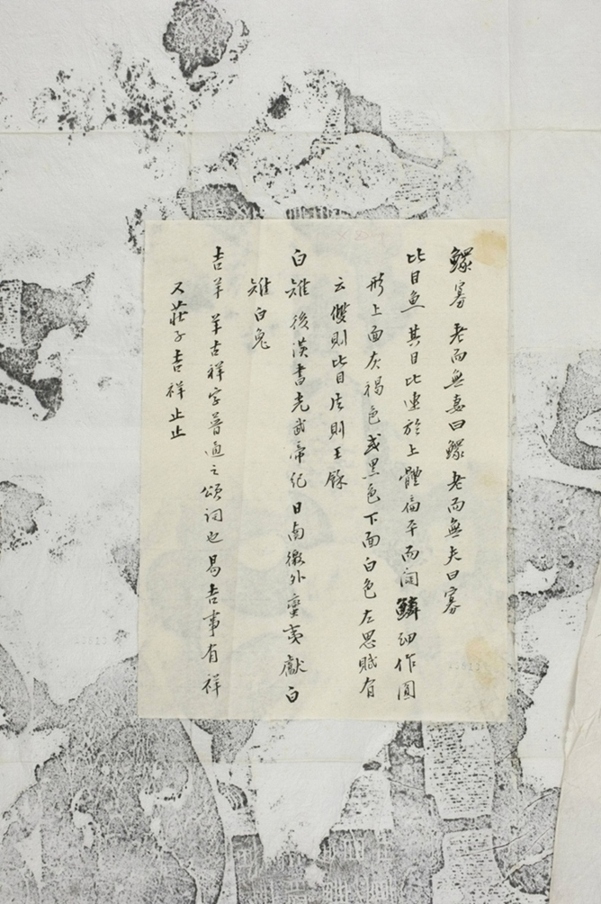 鰥寡 老而無妻曰鰥 老而無夫曰寡
比目魚 其目比連於上體扁平而闊鱗細作圓
形上面灰褐色或黑色下面白色左思賦有
云雙則比目片則王餘
白雉 後漢書光武帝紀 日南徼外蠻夷獻白
雉白兔
吉羊 羊古祥字普通之頌詞也 易吉事有祥
又莊子吉祥止止